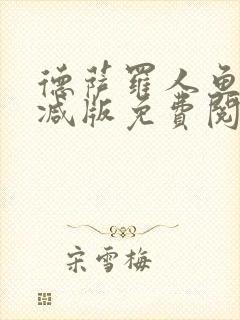 德萨罗人鱼
减版免费阅
宋雪梅